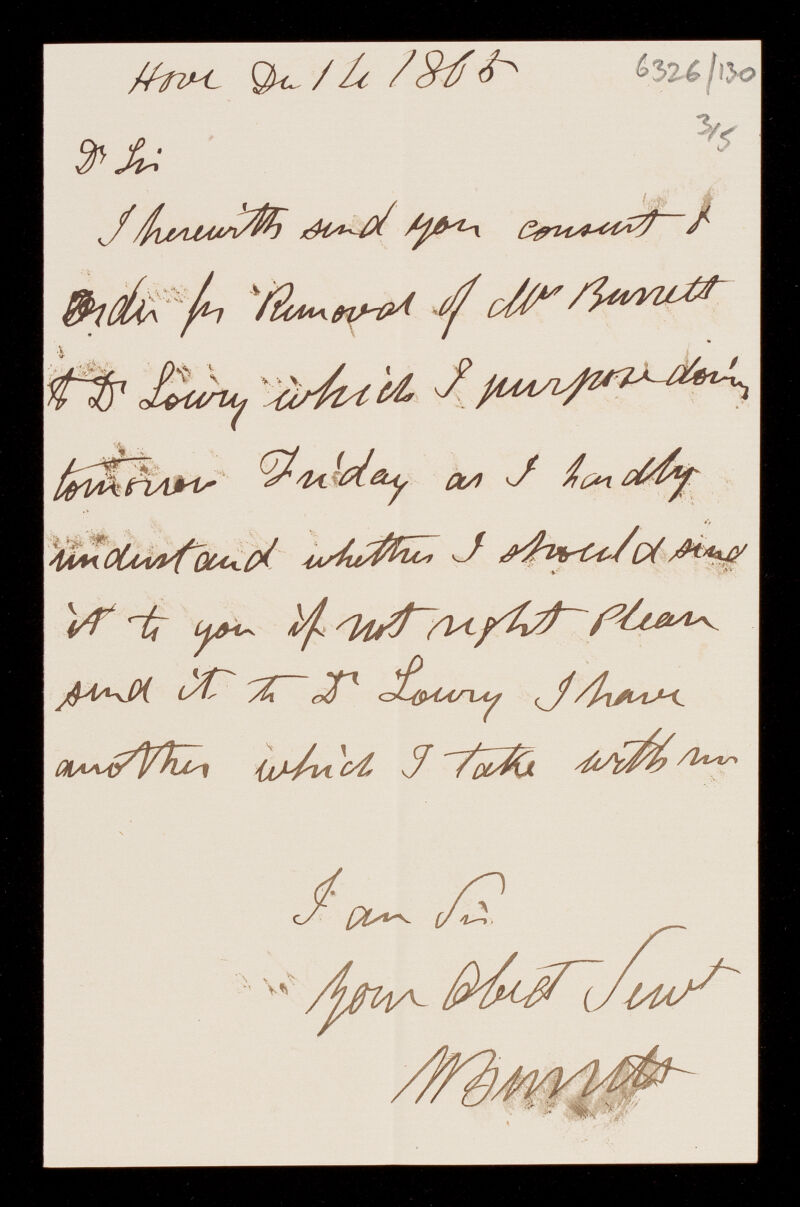 Hove Dec 14 1865
6326/130
3/5
Dr Sir
I herewith send you consent &
Order for Removal of Mrs Burrett
to Dr Lowry which I purpose doing
tomorrow Friday as I hardly
understand whether I should send
it to you if not right Please
send it to Dr Lowry I have
another which I take with me
I am Sir
Your Obedt Servt
W Burrett